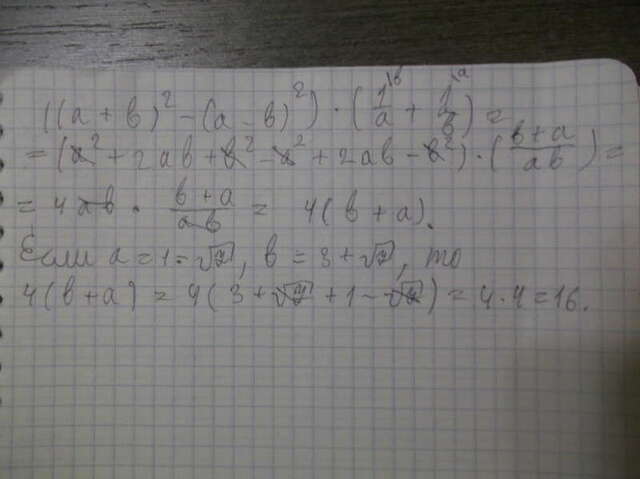 ((a + b)² - (a - b)²) · (1\b/a + 1\a/b) =
= (a² + 2ab + b² - a² + 2ab - b²) · (b + a/ab) =
= 4ab · b + a/ab = 4(b + a).
Если a = 1 - √2, b = 3 + √2, то
4(b + a) = 4(3 + √2 + 1 - √2) = 4 · 4 = 16.